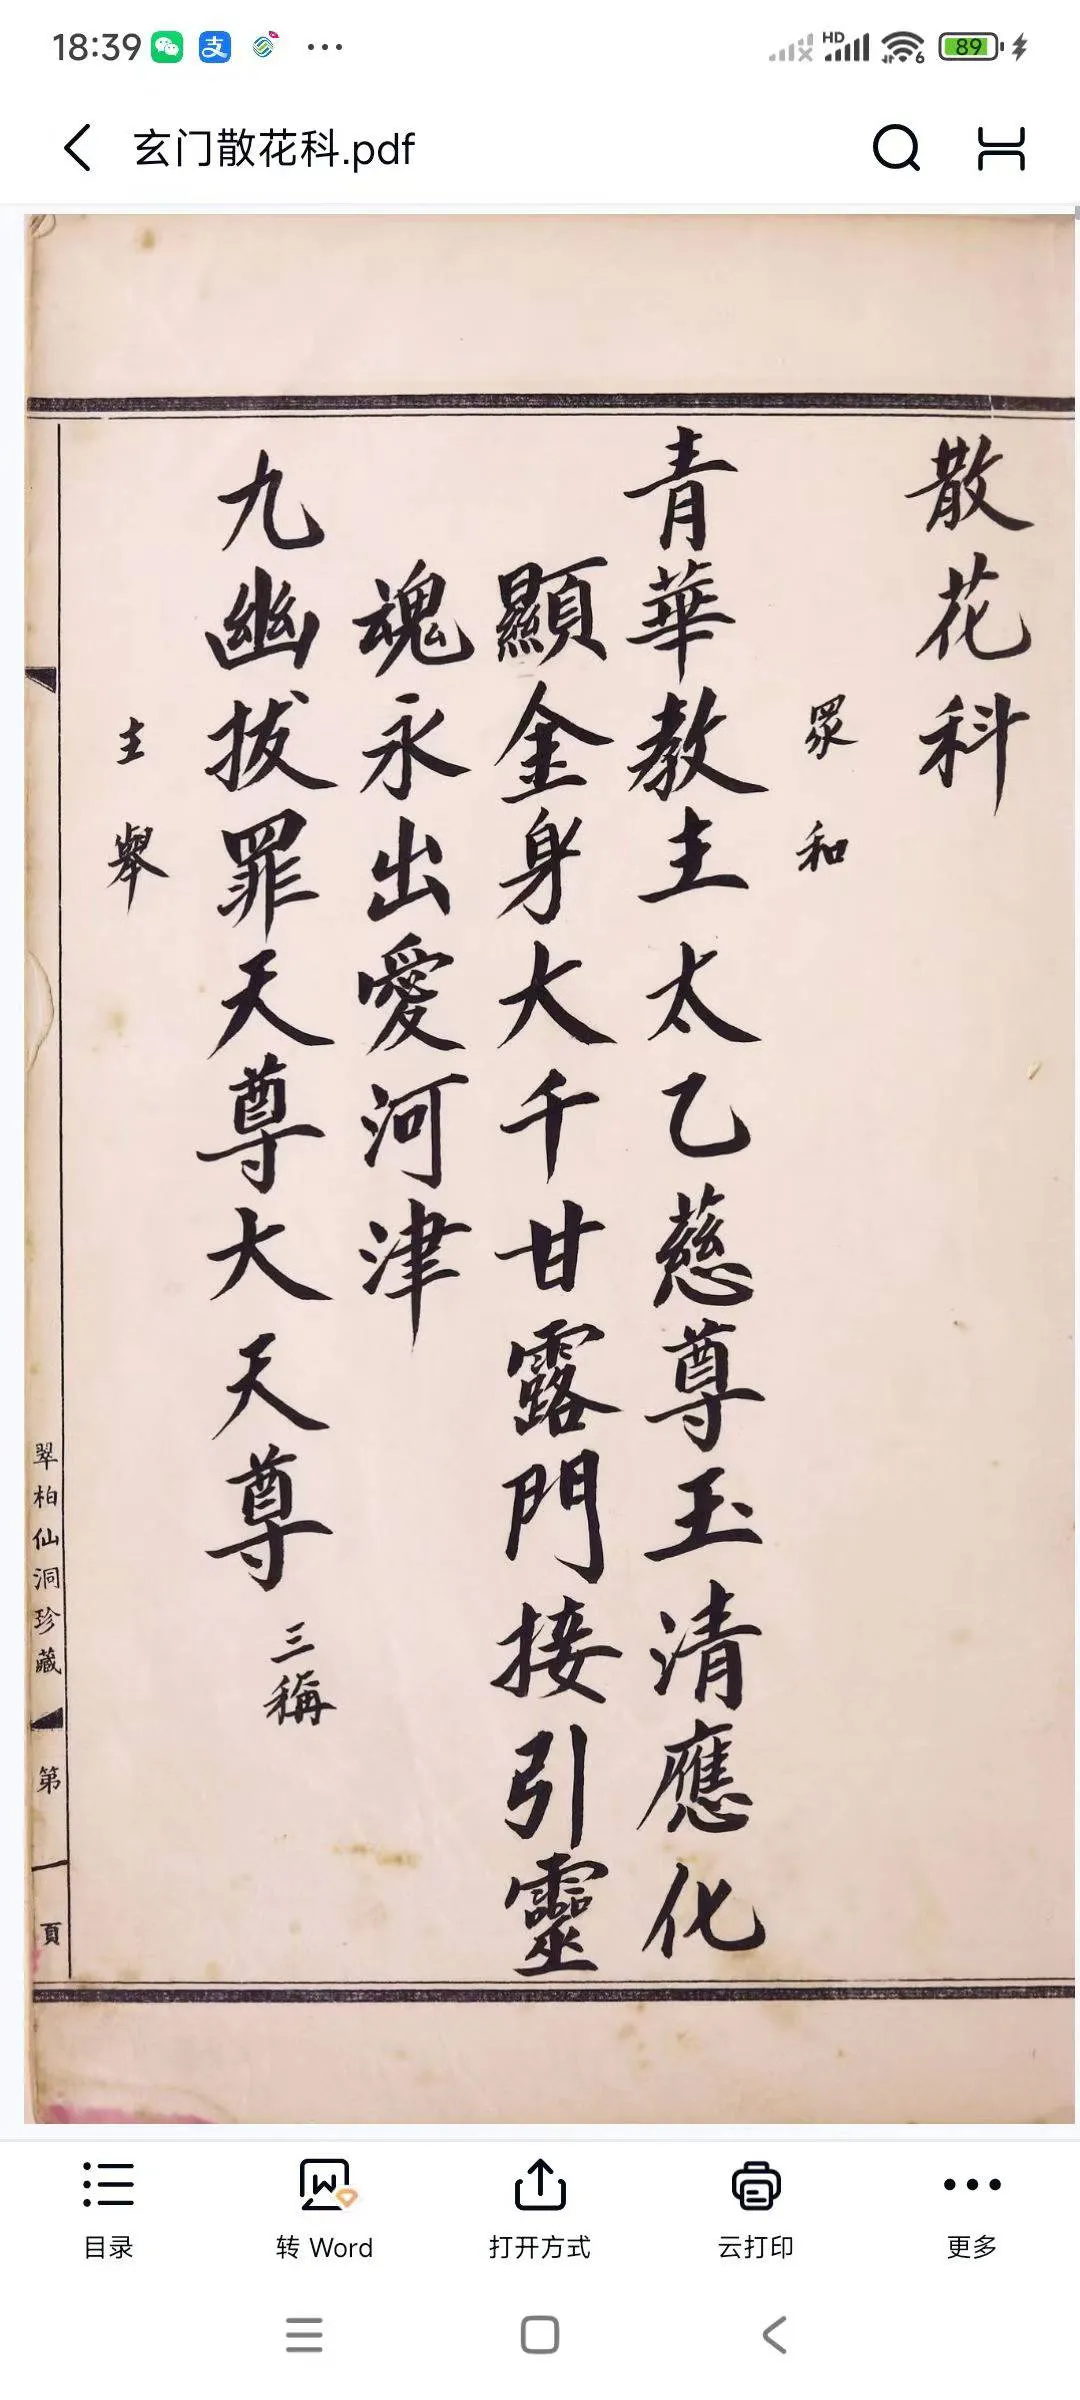 18:39
HD
6
89
玄门散花科.pdf
散花科
眾和
青華教主太乙慈尊玉清應化
顯金身大千甘露門接引靈
魂永出愛河津
九幽拔罪天尊大天尊
三稱
主舉
翠柏仙洞珍藏
第一頁
目录
转 Word
打开方式
云打印
更多